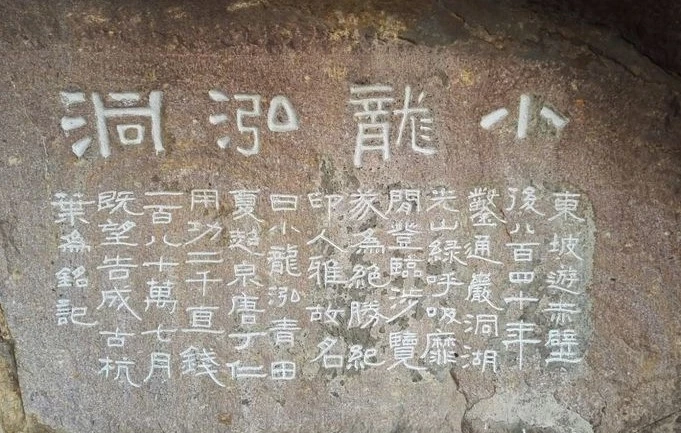 小龍泓洞
東坡遊赤壁
後八百四十年
鑿通巖洞湖
光山緑呼吸靡
閒登臨涉覽
㒸為絕勝紀
印人雅故名
曰小龍泓青田
夏超泉唐丁仁
用功二千直錢
一百八十萬七月
既望告成古杭
葉為銘記